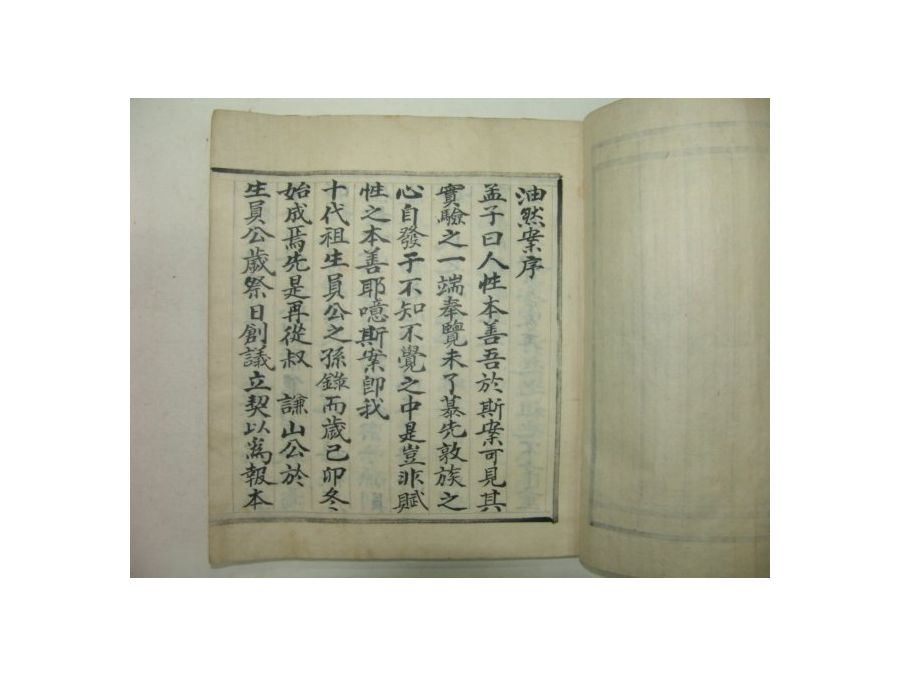 油然案序
孟子曰人性本善吾於斯案可見其
實驗之一端奉覽未了慕先敦族之
心自發于不知不覺之中是豈非賦
性之本善耶噫斯案卽我
十代祖生員公之孫錄而歲己卯冬
始成焉先是再從叔 謙山公於
生員公歲祭日創議立契以爲報本